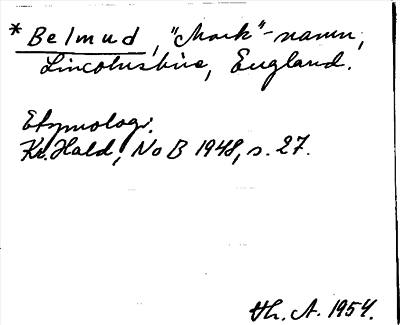 * Belmud, "Mark"-namn,
Lincolnshire, England.
Etymologi.
Kr. Hald, No B 1948, s. 27.
th. A. 1954.